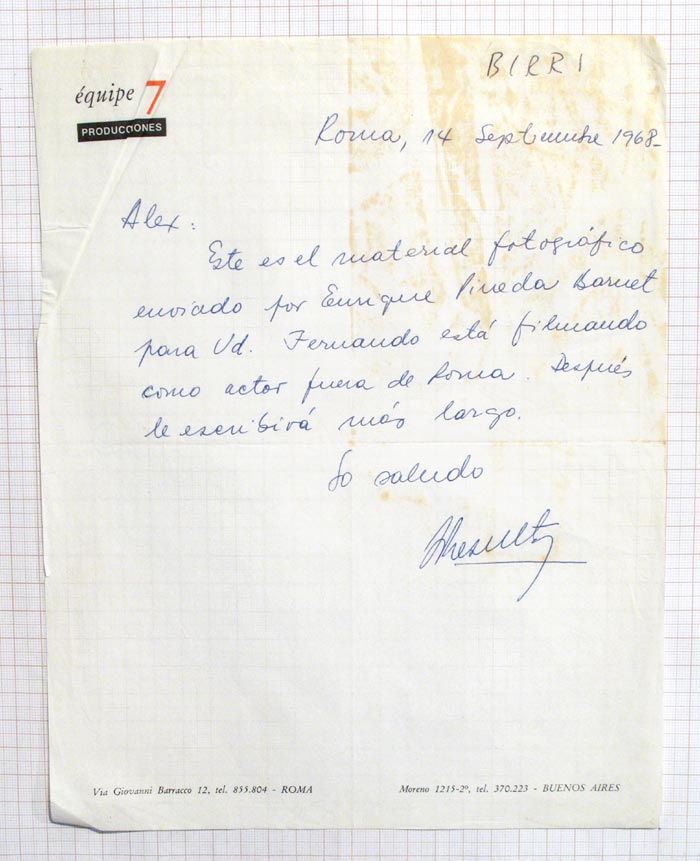 BIRRI
équipe 7
PRODUCCIONES
Roma, 14 Septiembre 1968-
Alex:
Este es el material fotográfico
enviado por Enrique Pineda Barnet
para Ud. Fernando está filmando
como actor fuera de Roma. Después
le escribirá más largo.
Lo saludo
Via Giovanni Barracco 12, tel. 855.804 - ROMA
Moreno 1215-2º, tel. 370.223 - BUENOS AIRES